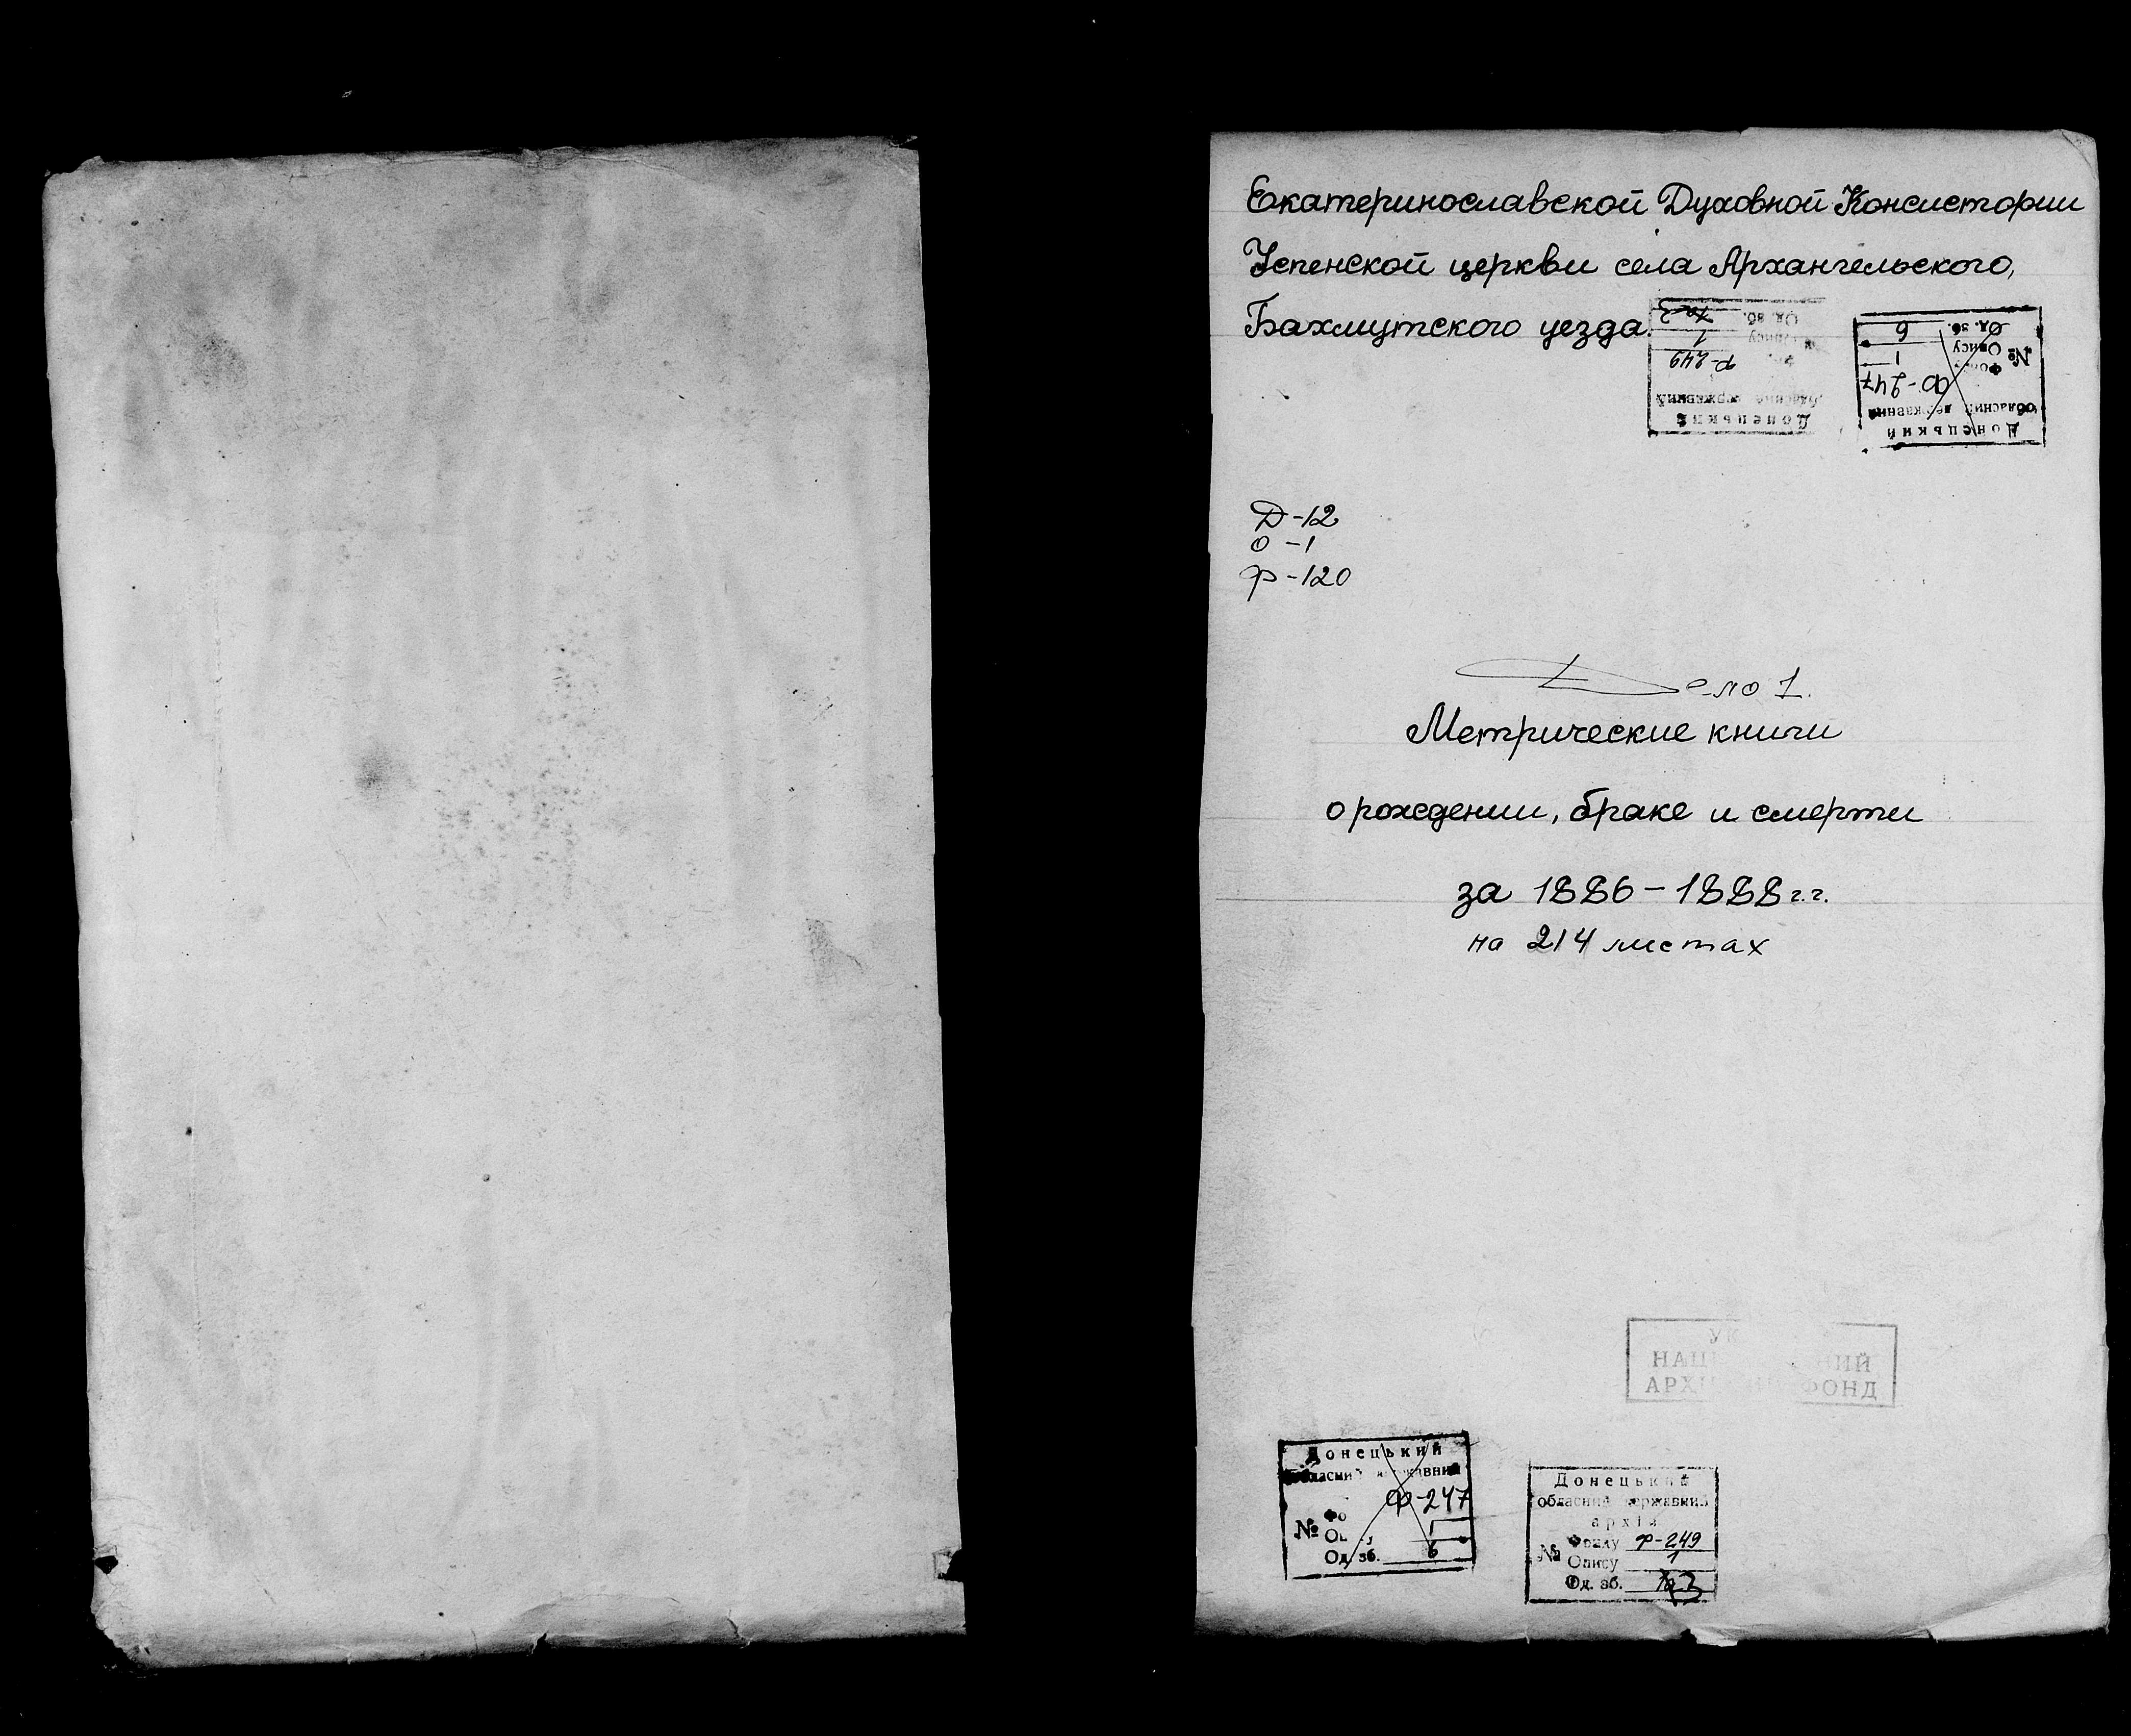 Екатеринославской Духовной Консистории
Успенской церкви села Архангельского,
Бахмутского уезда.
Од. зб.
Опису 1
Ф-249
обласний державний
Донецький
Од. зб. 6
Опису 1
№ Фонду Ф-247
обласний державний
Донецький
Д-12
О-1
Ф-120
Дело 1.
Метрические книги
о рождении, браке и смерти
за 1886-1888 г.г.
на 214 листах
НАЦ НИЙ
АРХІ ФОНД
Донецький
обласний державний
№ Фо Ф-247
Оп у 1
Од. зб. 6
Донецький
обласний державний
архів
№ Фонду Ф-249
Опису 1
Од. зб. 3